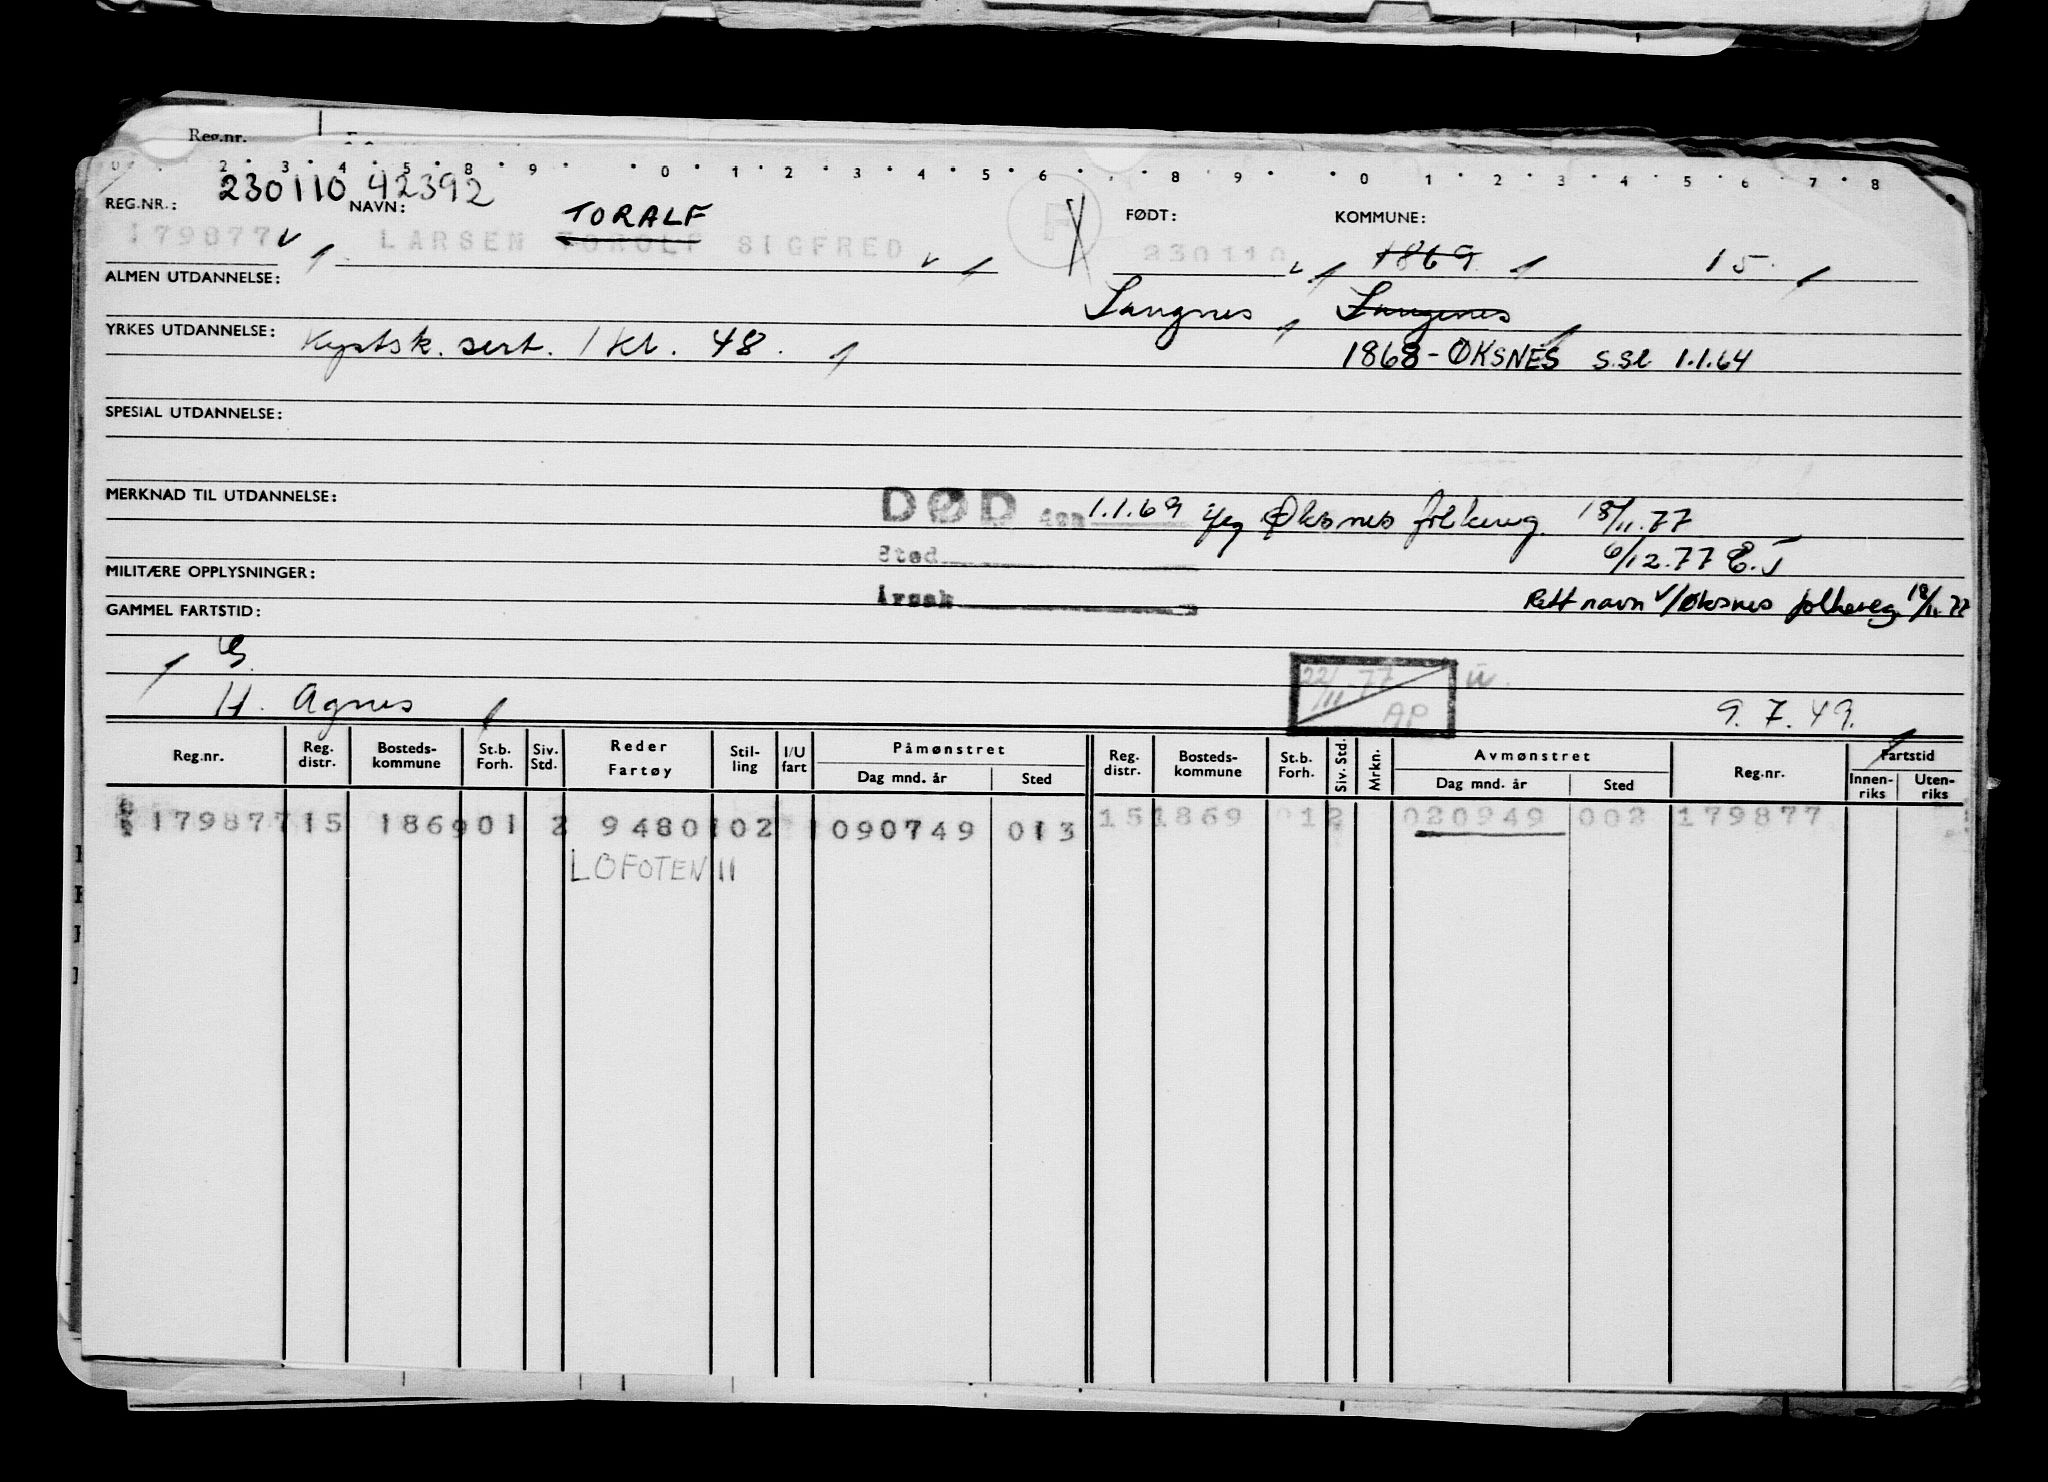 Reg.nr.
2 3 4 5 8 9 0 1 2 3 4 5 6 8 9 0 1 2 3 4 5 6 7 8
230110 42392
REG.NR.: NAVN: TORALF FØDT: KOMMUNE:
179877 LARSEN TOROLF SIGFRED F 230110 1869 15
ALMEN UTDANNELSE:
Langnes Langenes
YRKES UTDANNELSE: Kystsk. sert. 1 kl. 48.
1868-ØKSNES s.sl 1.1.64
SPESIAL UTDANNELSE:
MERKNAD TIL UTDANNELSE:
DØD den 1.1.69 ifeg Øksnes folkereg. 18/11.77
Sted 6/12.77 E.J
MILITÆRE OPPLYSNINGER:
Årsak Rett navn v/Øksnes folkereg 18/11.77
GAMMEL FARTSTID:
G.
22/11-77 AP
H. Agnes 9.7.49.
Reg.nr. Reg. distr. Bosteds-kommune St.b. Forh. Siv. Std. Reder Fartøy Stil-ling I/U fart Påmønstret Dag mnd. år Sted Reg. distr. Bosteds-kommune St.b. Forh. Siv. Std. Mrkn. Avmønstret Dag mnd. år Sted Reg.nr. Fartstid Innen-riks Uten-riks
179877 15 1869 01 2 9480 102 090749 013 15 1869 01 2 020949 002 179877
LOFOTEN II